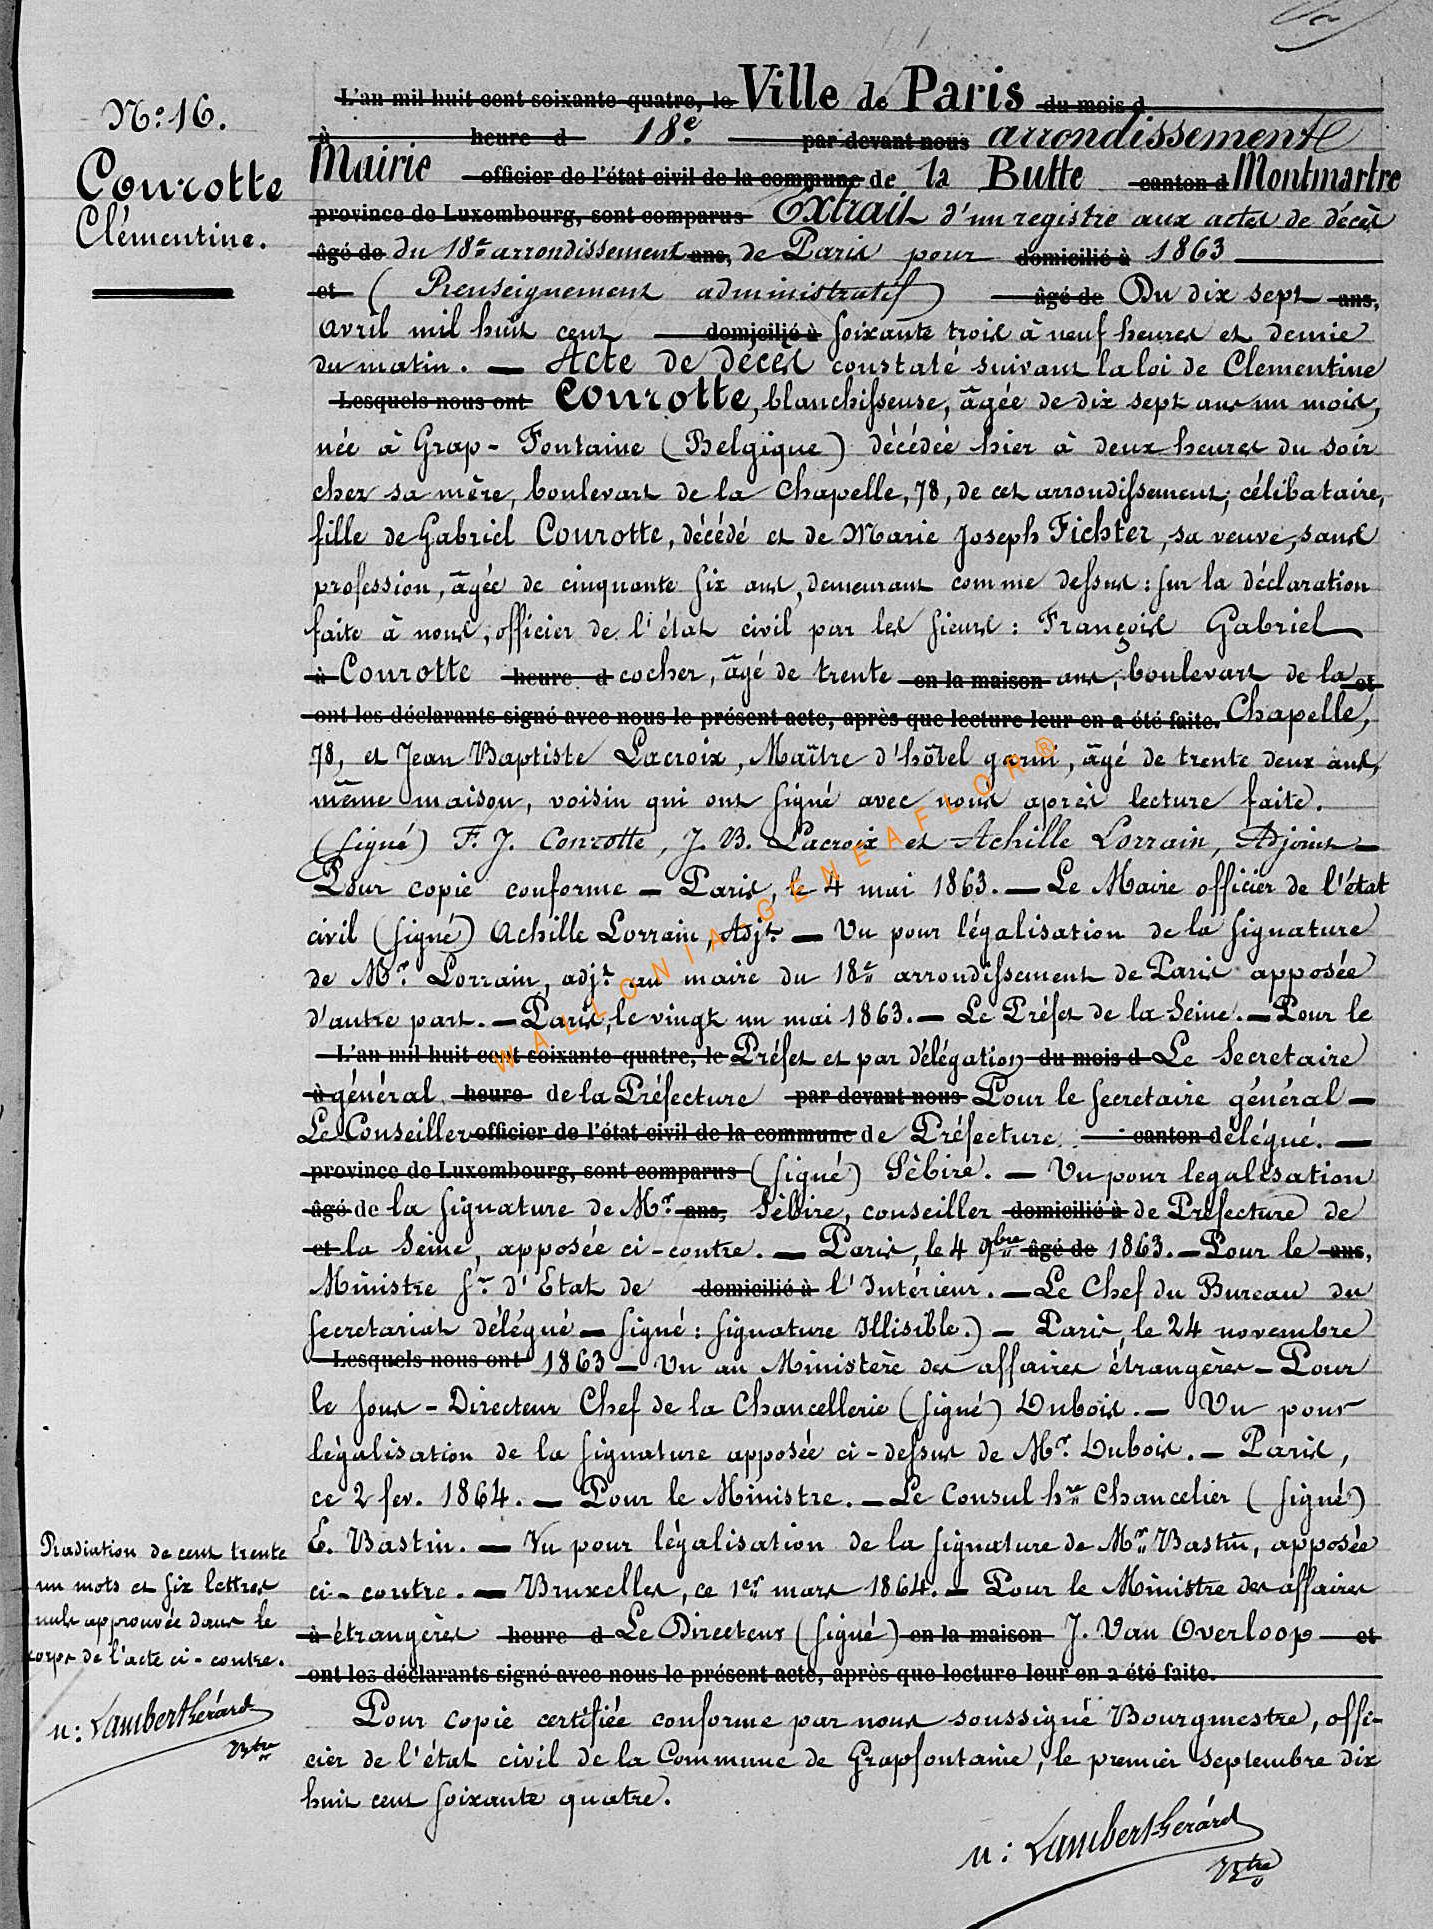 N.° 16.
Courotte
Clémentine.
L'an mil huit cent soixante-quatre, le Ville de Paris du mois d
à heure d 18e par devant nous arrondissement
Mairie officier de l'état civil de la commune de la Butte canton d Montmartre
province de Luxembourg, sont comparus Extrait d'un registre aux actes de décès
âgé de du 18e arrondissement ans, de Paris pour domicilié à 1863
et (Renseignement administratif) âgé de Du dix sept ans,
avril mil huit cent domicilié à soixante trois à neuf heures et demie
du matin. — Acte de décès constaté suivant la loi de Clementine
Lesquels nous ont Courotte, blanchisseuse, âgée de dix sept ans un mois,
née à Grap-Fontaine (Belgique) décédée hier à deux heures du soir
chez sa mère, boulevart de la Chapelle, 78, de cet arrondissement; célibataire,
fille de Gabriel Courotte, décédé et de Marie Joseph Fichter, sa veuve, sans
profession, âgée de cinquante six ans, demeurant comme dessus: sur la déclaration
faite à nous, officier de l'état civil par les sieurs: François Gabriel
à Courotte heure d cocher, âgé de trente en la maison ans, boulevart de la et
ont les déclarants signé avec nous le présent acte, après que lecture leur en a été faite. Chapelle,
78, et Jean Baptiste Lacroix, Maître d'hôtel garni, âgé de trente deux ans,
même maison, voisin qui ont signé avec nous après lecture faite.
(signé) F. J. Courotte, J. B. Lacroix et Achille Lorrain, Adjoint —
Pour copie conforme — Paris, le 4 mai 1863. — Le Maire officier de l'état
civil (signé) Achille Lorrain, Adjt. — Vu pour légalisation de la signature
de Mr. Lorrain, adjt. au maire du 18e arrondissement de Paris apposée
d'autre part. — Paris, le vingt un mai 1863. — Le Préfet de la Seine. — Pour le
L'an mil huit cent soixante-quatre, le Préfet et par délégation du mois d Le Secretaire
à général heure de la Préfecture par devant nous Pour le secretaire général —
Le Conseiller officier de l'état civil de la commune de Préfecture. canton délégué. —
province de Luxembourg, sont comparus (signé) Sébire. — Vu pour legalisation
âgé de la signature de Mr ans, Sébire, conseiller domicilié à de Prefecture de
et la Seine, apposée ci-contre. — Paris, le 4 9bre âgé de 1863. — Pour le ans,
Ministre Sre d'Etat de domicilié à l'Intérieur. — Le Chef du Bureau du
Secretariat délégué — signé: signature Illisible.) — Paris, le 24 novembre
Lesquels nous ont 1863 — Vu au Ministère des affaires étrangères — Pour
le sous-Directeur Chef de la Chancellerie (signé) Dubois. — Vu pour
légalisation de la signature apposée ci-dessus de Mr. Dubois. — Paris,
ce 2 fev. 1864. — Pour le Ministre. — Le Consul hre Chancelier (signé)
E. Bastin. — Vu pour légalisation de la signature de Mr Bastin, apposée
ci-contre. — Bruxelles, ce 1er mars 1864. — Pour le Ministre des affaires
à étrangères heure d Le Directeur (signé) en la maison J. Van Overloop — et
ont les déclarants signé avec nous le présent acte, après que lecture leur en a été faite.
Pour copie certifiée conforme par nous soussigné Bourgmestre, offi-
cier de l'état civil de la Commune de Grapfontaine, le premier septembre dix
huit cent soixante quatre.
N: Lambert-Gérard
Btre
Radiation de cent trente
un mots et six lettres
nuls approuvée dans le
corps de l'acte ci-contre.
N: Lambert Gérard
Btre
WALLONIA-GENEAFLOR®